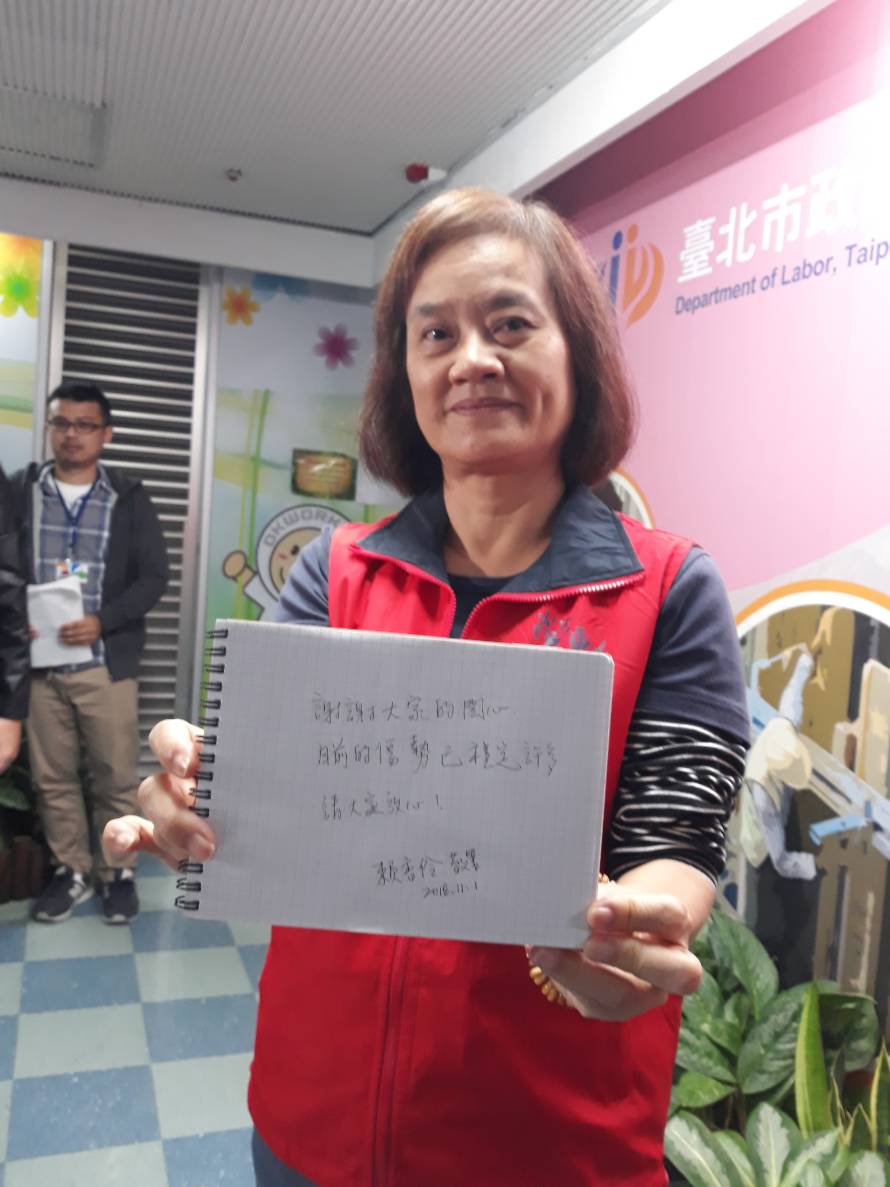 臺北市政
Department of Labor, Taip
OKWORK
謝謝大家的関心
目前的傷勢已穩定許多
請大家放心!
賴香伶 敬署
2018.11.1